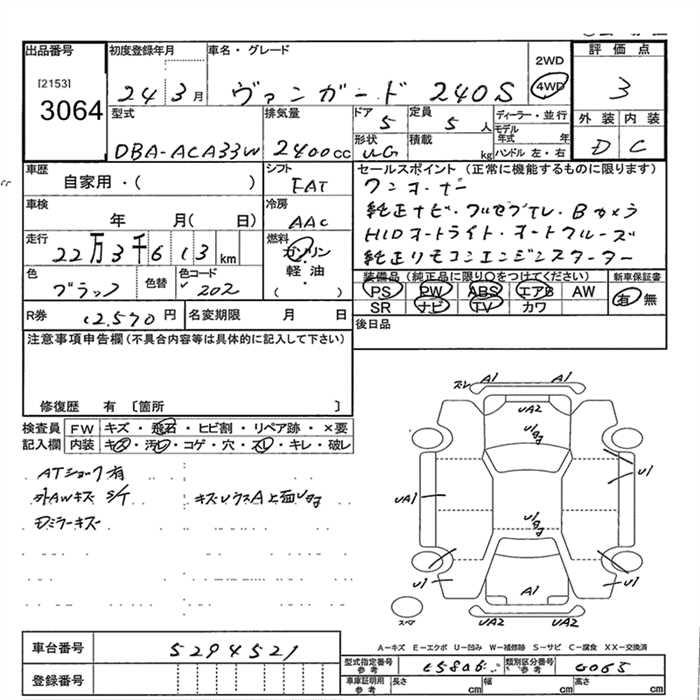 出品番号
[2153]
3064
初度登録年月
24 3月
車名・グレード
ヴァンガード 240S
2WD
4WD
評価点
3
外装 内装
D C
型式
DBA-ACA33W
排気量
2400cc
ドア
5
形状
UG
定員
5人
積載
kg
ディーラー・並行
モデル年式 年
ハンドル 左・右
車歴
自家用・( )
シフト
FAT
車検
年 月( 日)
冷房
AAC
走行
22万3千613km
燃料
ガソリン
軽油・
( )
色
ブラック
色替
色コード
202
セールスポイント (正常に機能するものに限ります)
ワンオーナー
純正ナビ・フルセグTV・Bカメラ
HIDオートライト・オートクルーズ
純正リモコンエンジンスターター
装備品 (純正品に限り○をつけてください)
PS PW ABS エアB AW
SR ナビ TV カワ
新車保証書
有 無
R券 12.570円
名変期限 月 日
後日品
注意事項申告欄 (不具合内容等は具体的に記入して下さい)
修復歴 有 〔箇所 〕
検査員記入欄
FW キズ・飛石・ヒビ割・リペア跡・×要
内装 キズ・汚レ・コゲ・穴・スレ・キレ・破レ
ATショック有
外AWキズ S/T
Dミラーキズ
スレ A1 A1
UA2
UA1
U1
U1
U1
A1
UA2 UA2
スペア
A-キズ E-エクボ U-凹み W-補修跡 S-サビ C-腐食 XX-交換済
車台番号
5294521
登録番号
型式指定番号 参考
類別区分番号 参考
車庫証明用 参考
長さ cm
幅 cm
高さ cm